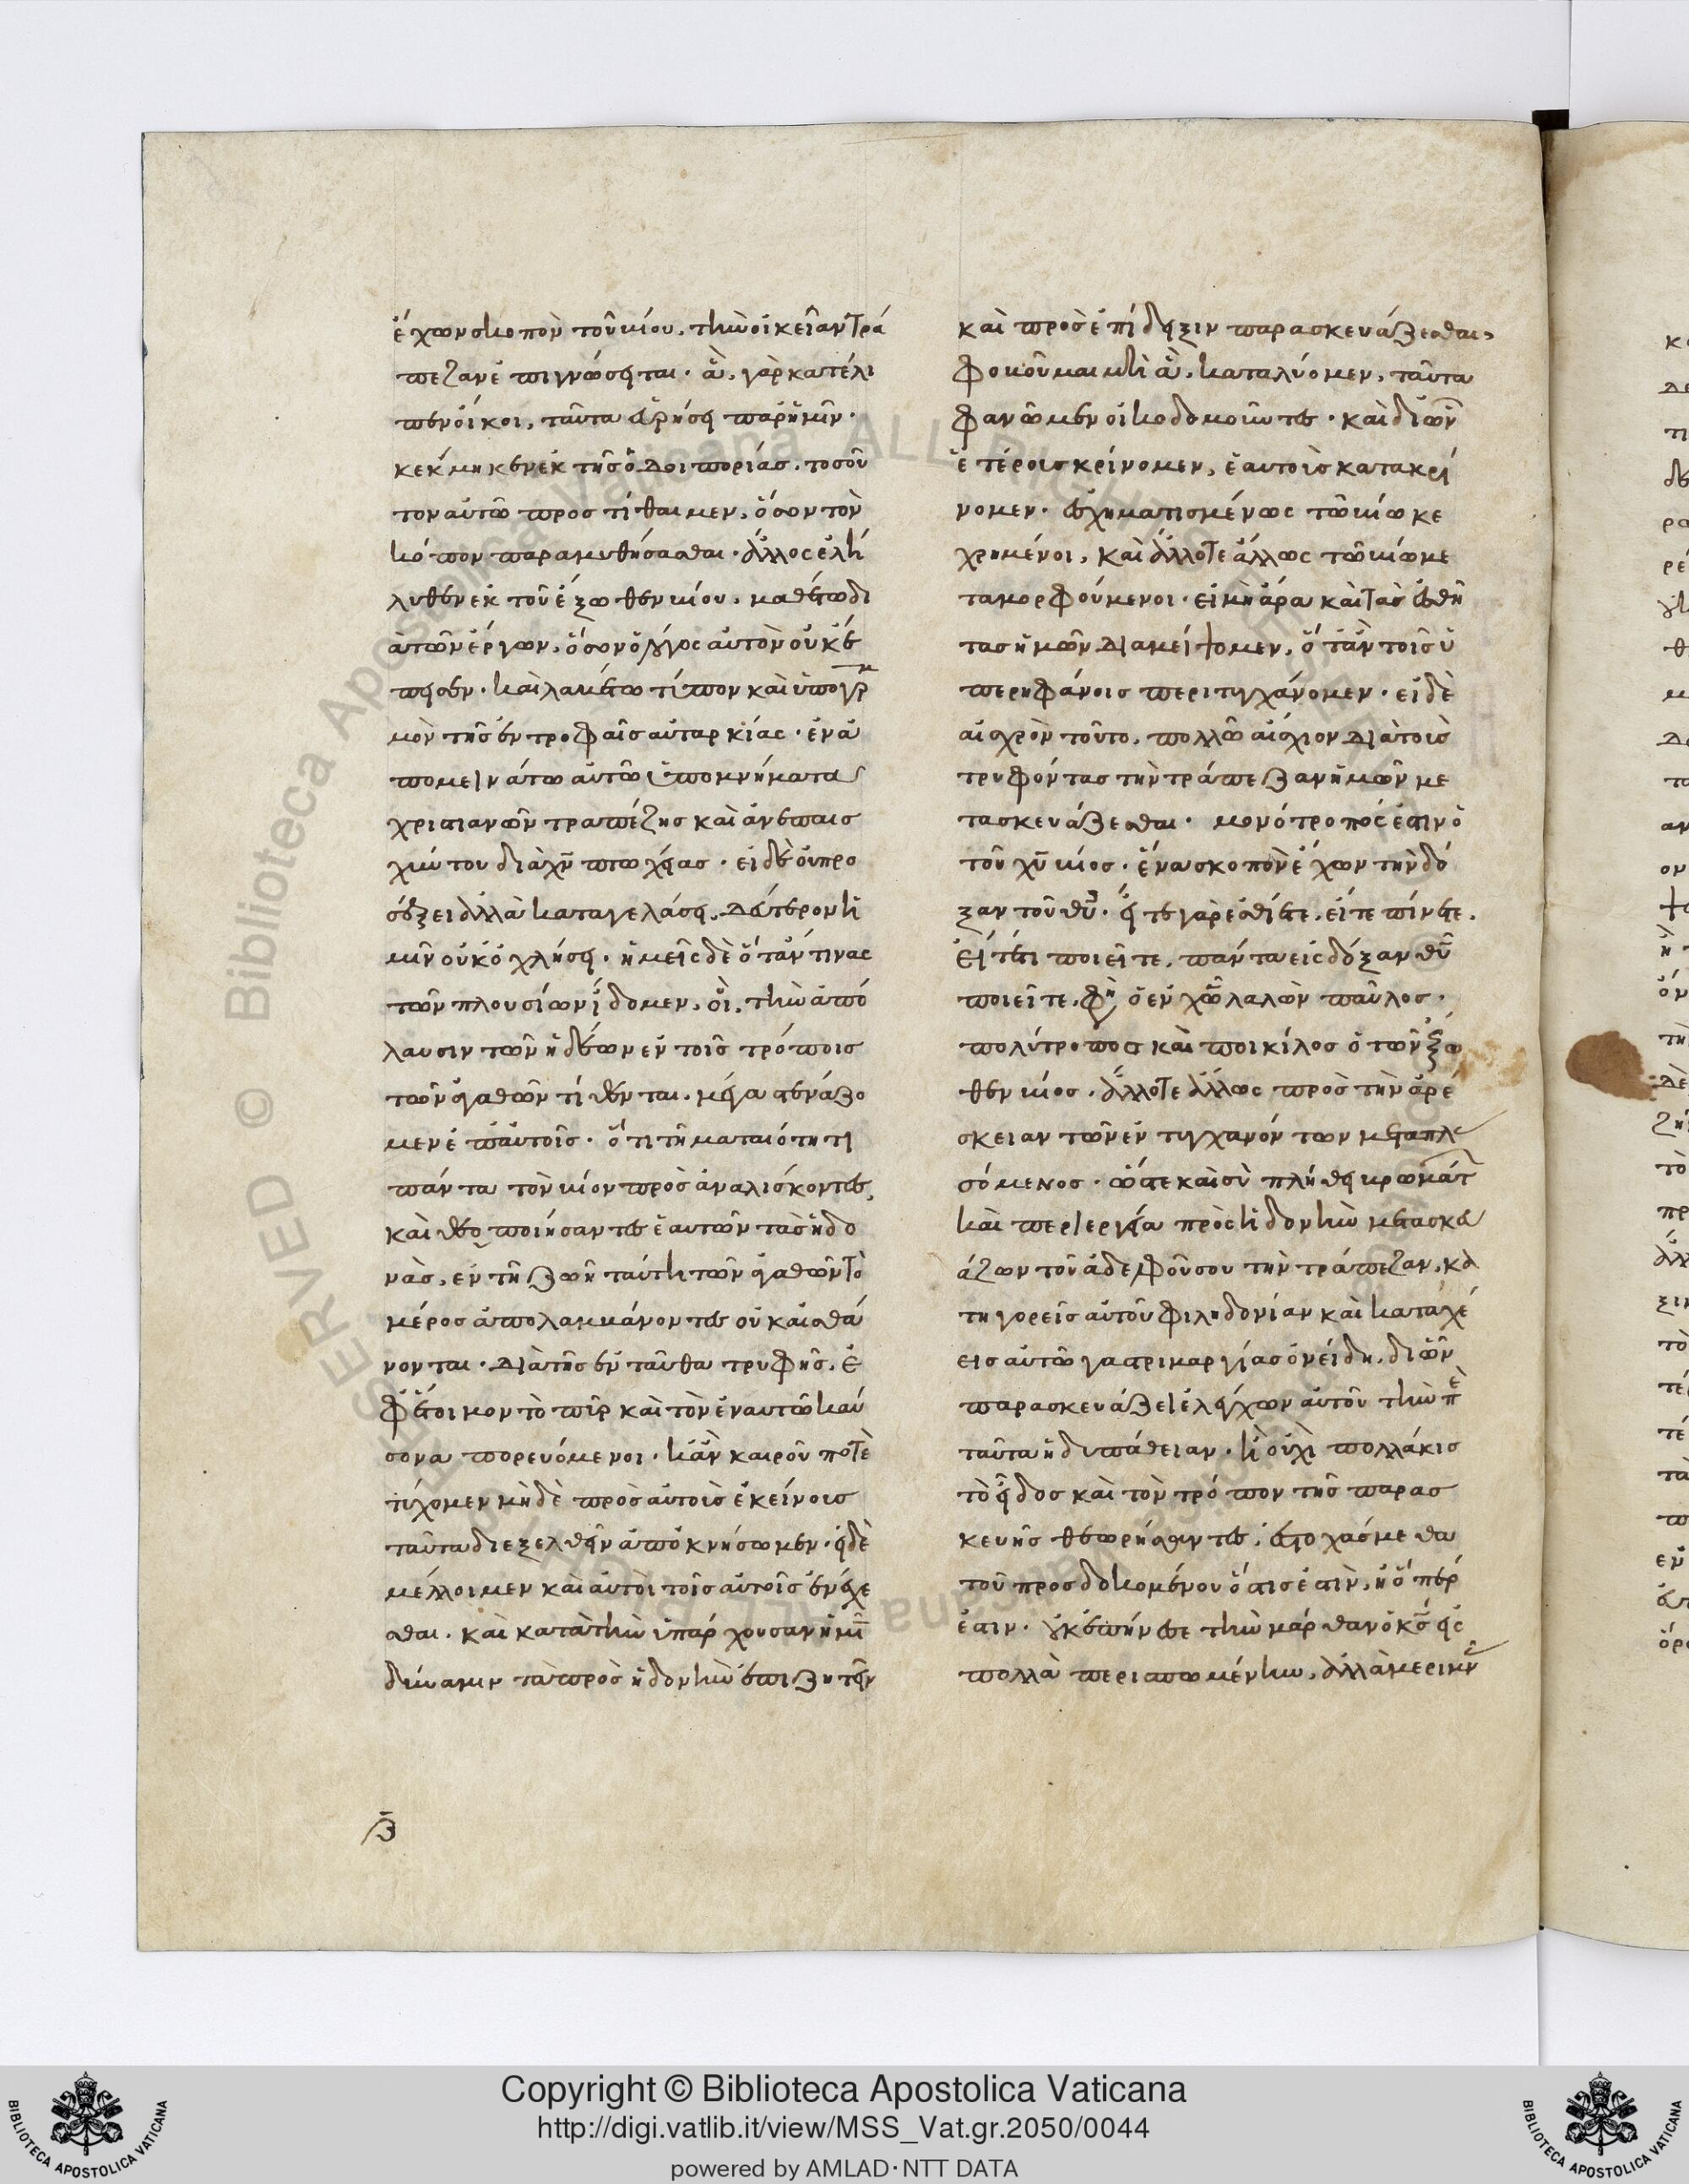 ἔχων σκοπὸν τοῦ βίου, τὴν οἰκείαν τρά
πεζαν ἐπιγνώσεται· ἃ, γὰρ κατέλι
πεν οἴκοι, ταῦτα εὑρήσει παρ' ἡμῖν·
κέκμηκεν ἐκ τῆς ὁδοιπορίας· τοσοῦ
τον αὐτῶ προστίθαιμεν, ὅσον τὸν
κόπον παραμυθήσασθαι· ἄλλος ἐλή
λυθεν ἐκ τοῦ ἔξωθεν βίου, μαθέτω δι
ὰ τῶν ἔργων, ὅσον ὁ λόγος αὐτὸν οὐκ ἔ
πεισεν· καὶ λαβέτω τύπον καὶ ὑπογρ
μὸν τῆς ἐν τροφαῖς αὐταρκίας· ἐνα
πομεινάτω αὐτῶ ὑπομνήματα
χριστιανῶν τραπέζης καὶ ἀνεπαισ
χύντου διὰ χν πτωχείας· εἰ δὲ οὐ προ
σέξει ἀλλὰ καταγελάσει, δεύτερον ἡ
μῖν οὐκ ὀχλήσει· ἡμεῖς δὲ ὅταν τινας
τῶν πλουσίων ἴδομεν, οἳ, τὴν ἀπό
λαυσιν τῶν ἡδέων ἐν τοῖς πρώτοις
τῶν ἀγαθῶν τίθενται, μέγα στενάζο
μεν ἐπ' αὐτοῖς· ὅτι τῆ ματαιότητι
πάντα τὸν βίον προσαναλίσκοντες,
καὶ θεοποιήσαντες ἑαυτῶν τὰς ἡδο
νάς, ἐν τῆ ζωῆ ταύτη τῶν ἀγαθῶν τὸ
μέρος ἀπολαμβάνοντες οὐκ αἰσθά
νονται· διὰ τῆς ἐνταῦθα τρυφῆς, ἐ
φ' ἕτοιμον τὸ πῦρ καὶ τὸν ἐν αυτῶ καύ
σονα πορευόμενοι· κἂν καιροῦ ποτὲ
τύχομεν μηδὲ πρὸς αὐτοὺς ἐκείνους
ταῦτα διεξελθεῖν ἀποκνήσωμεν· εἰ δὲ
μέλλοιμεν καὶ αὐτοὶ τοῖς αὐτοῖς ἐνέχε
σθαι· καὶ κατὰ τὴν ὑπάρχουσαν ἡμῖ
δύναμιν τὰ πρὸς ἡδονὴν ἐπιζητεῖν
καὶ πρὸς ἐπίδειξιν παρασκευάζεσθαι,
φοβοῦμαι μὴ ἃ, καταλύομεν, ταῦτα
φανῶμεν οἰκοδομοῦντες· καὶ δι ὧν
ἑτέρους κρίνομεν, ἑαυτοὺς κατακρί
νομεν· ἐσχηματισμένως τῶ βίω κε
χρημένοι, καὶ ἄλλοτε ἄλλως τῶ βίω με
ταμορφούμενοι· εἰ μὴ ἄρα καὶ τὰς ἐσθῆ
τας ἡμῶν διαμείψομεν, ὅτ' ἂν τοῖς ὑ
περηφάνοις περιτυγχάνομεν· εἰ δὲ
αἰσχρὸν τοῦτο, πολλῶ αἴσχιον διὰ τοὺς
τρυφόντας τὴν τράπεζαν ἡμῶν με
τασκευάζεσθαι· μονότροπός ἐστιν ὁ
τοῦ χυ βίος· ἕνα σκοπὸν ἔχων τὴν δό
ξαν τοῦ θυ· εἴτε γὰρ ἐσθίετε, εἴτε πίνετε,
εἴτε τι ποιεῖτε, πάντα εἰς δόξαν θυ
ποιεῖτε, φη ὁ ἐν χω λαλῶν παῦλος·
πολύτροπος καὶ ποικίλος ὁ τῶν ἔξω
θεν βίος· ἄλλοτε ἄλλως πρὸς τὴν ἀρέ
σκειαν τῶν ἐντυγχανόντων μεταπλα
σόμενος· ὥστε καὶ σὺ πλήθει βρωμάτ
καὶ περιεργία πρὸς ἡδονὴν μετασκευ
άζων τοῦ ἀδελφοῦ σου τὴν τράπεζαν, κα
τηγορεῖς αὐτοῦ φιληδονίαν καὶ καταχέ
εις αὐτῶ γαστριμαργίας ὀνείδη, δι ὧν
παρασκευάζει ἐλέγχων αὐτοῦ τὴν πε
ταῦτα ἡδυπάθειαν· ἢ οὐχὶ πολλάκις
τὸ εἶδος καὶ τὸν τρόπον τῆς παρασ
κευῆς θεωρήσαντες, ἐστοχασμεθα
τοῦ προσδοκομένου ὅστις ἐστὶν, ἢ ὅπερ
ἐστιν· οὐκ ἐπήνεσε τὴν μάρθαν ὁ κς εἰς
πολλὰ περισπωμένην, ἀλλὰ μεριμν